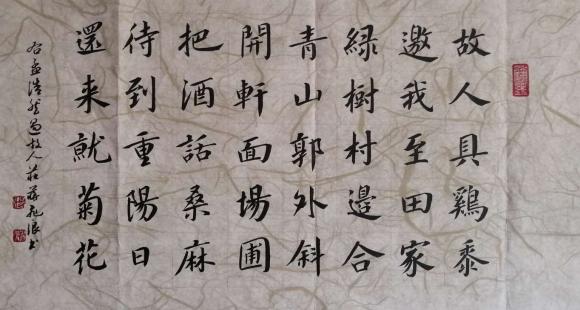 故人具鷄黍
邀我至田家
綠樹村邊合
青山郭外斜
開軒面場圃
把酒話桑麻
待到重陽日
還来就菊花
右孟浩然過故人莊 書